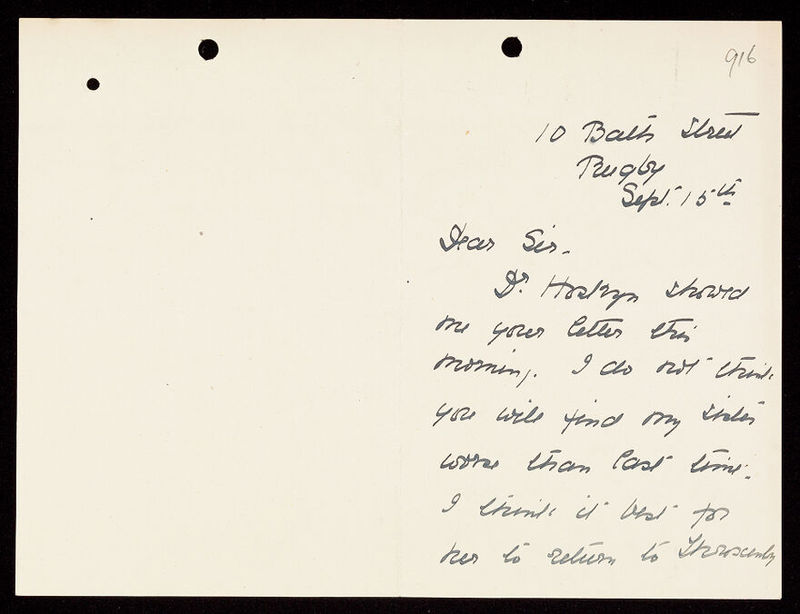 916
10 Bath Street
Rugby
Sept. 15th
Dear Sir.
Dr. Hoskyn showed
me your letter this
morning. I do not think
you will find my sister
worse than last time.
I think it best for
her to return to